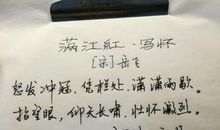 满江紅·写怀
[宋]岳飞
怒发冲冠，凭栏处，潇潇雨歇。
抬望眼，仰天长啸，壮怀激烈。